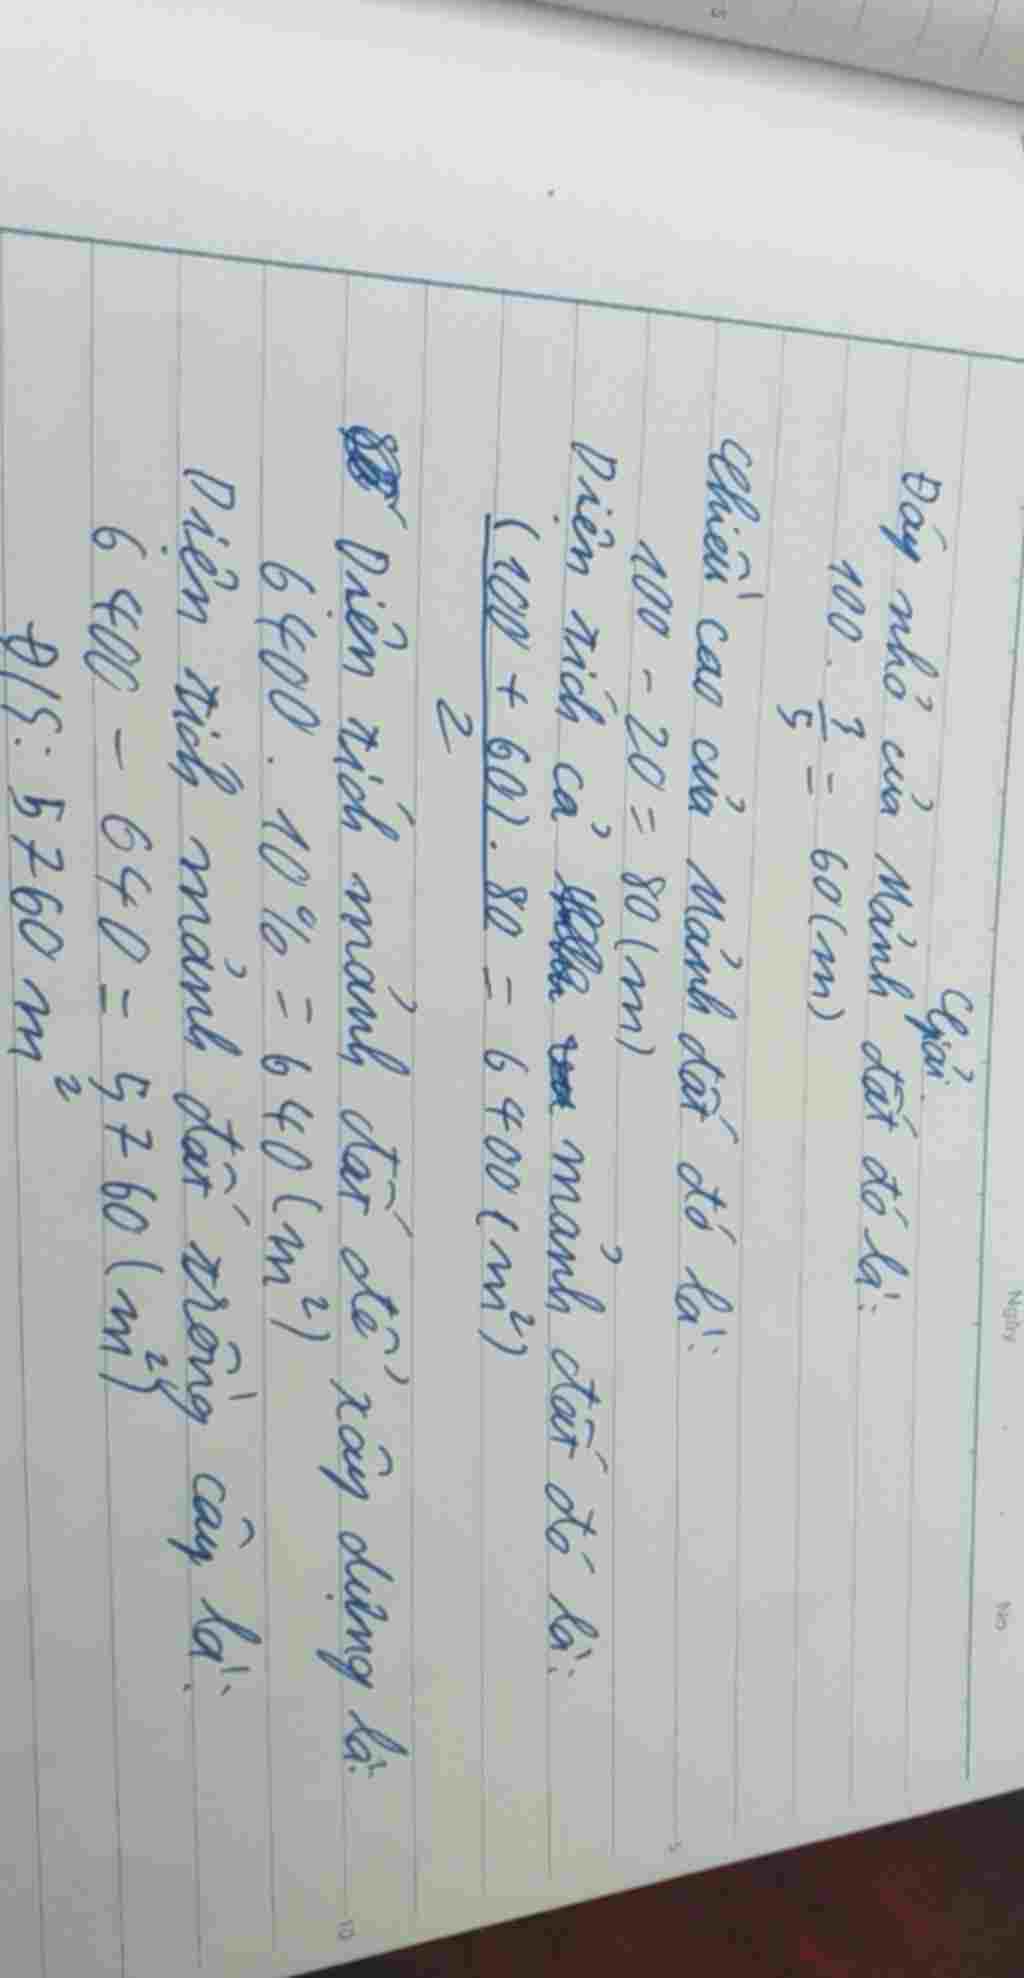 Giải
Đáy nhỏ của Mảnh đất đó là:
100 . 3/5 = 60 (m)
Chiều cao của Mảnh đất đó là:
100 - 20 = 80 (m)
Diện tích cả mảnh đất đó là:
(100 + 60) . 80 / 2 = 6 400 (m²)
Diện tích mảnh đất để xây dựng là:
6 400 . 10% = 640 (m²)
Diện tích mảnh đất trồng cây là:
6 400 - 640 = 5 760 (m²)
Đ/S: 5 760 m²
Ngày
No
5
10